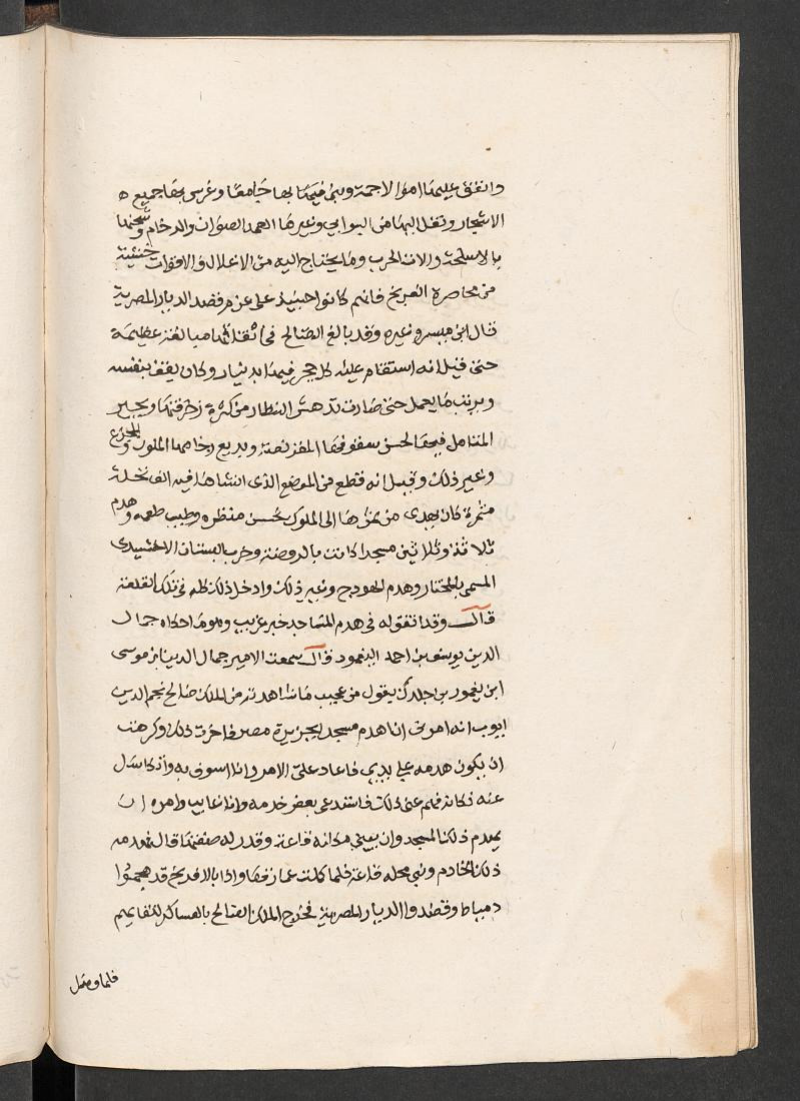 وانفق عليها اموالا جمة وبنى فيها بها جامعا وغرس بها جميع
الاشجار ونقل اليها من البرابي وغيرها العمد الصوان والرخام وشحنها
بالاسلحة والات الحرب وما يحتاج اليه من الاغلال والاقوات خشية
من محاصرة الفرنج فانهم كانوا حينئذ على عزم قصد الديار المصرية
قال ابن ميسر وغيره وقد بالغ الصالح في اتقانها مبالغة عظيمة
حتى قيل انه استقام عليه كل حجر فيها بدينار وكان يقف بنفسه
ويرتب ما يعمل حتى صارت تدهش النظار من كثرة زخرفتها ويحير
المتامل فيها الحسن سقوفها المقرنصة وبديع رخامها الملون والمجزع
وغير ذلك وقيل انه قطع من الموضع الذى انشاها فيه الف نخلة
مثمرة كان يهدى من تمرها الى الملوك لحسن منظره وطيب طعمه وهدم
ثلاثة وثلاثين مسجدا كانت بالروضة وخرب البستان الاخشيدى
المسمى بالمختار وهدم الهودج وغير ذلك وادخل ذلك كله في تلك القلعة
قال وقد اتفق له في هدم المساجد خبر غريب وهو ما حكاه جمال
الدين يوسف بن احمد اليغمور قال سمعت الامير جمال الدين ابن موسى
ابن يغمور بن جلدك يقول من عجيب ما شاهدته من الملك صالح نجم الدين
ايوب انه امرنى انا هدم مسجد بجزيرة مصر فاخرت ذلك وكرهت
ان يكون هدمه على يدي فاعاد على الامر وانا اسوف به واتكاسل
عنه فكانه فهم عنى ذلك فاستدعى بعض خدمه وانا غايب وامره ان
يهدم ذلك المسجد وان يبنى مكانه قاعة وقدر له صفتها قال فهدمه
ذلك الخادم وبنى محله قاعة فلما كملت عمارتها واذا بالافرنج قد هجموا
دمياط وقصدوا الديار المصرية فخرج الملك الصالح بالعساكر للقايهم
فلما وصل